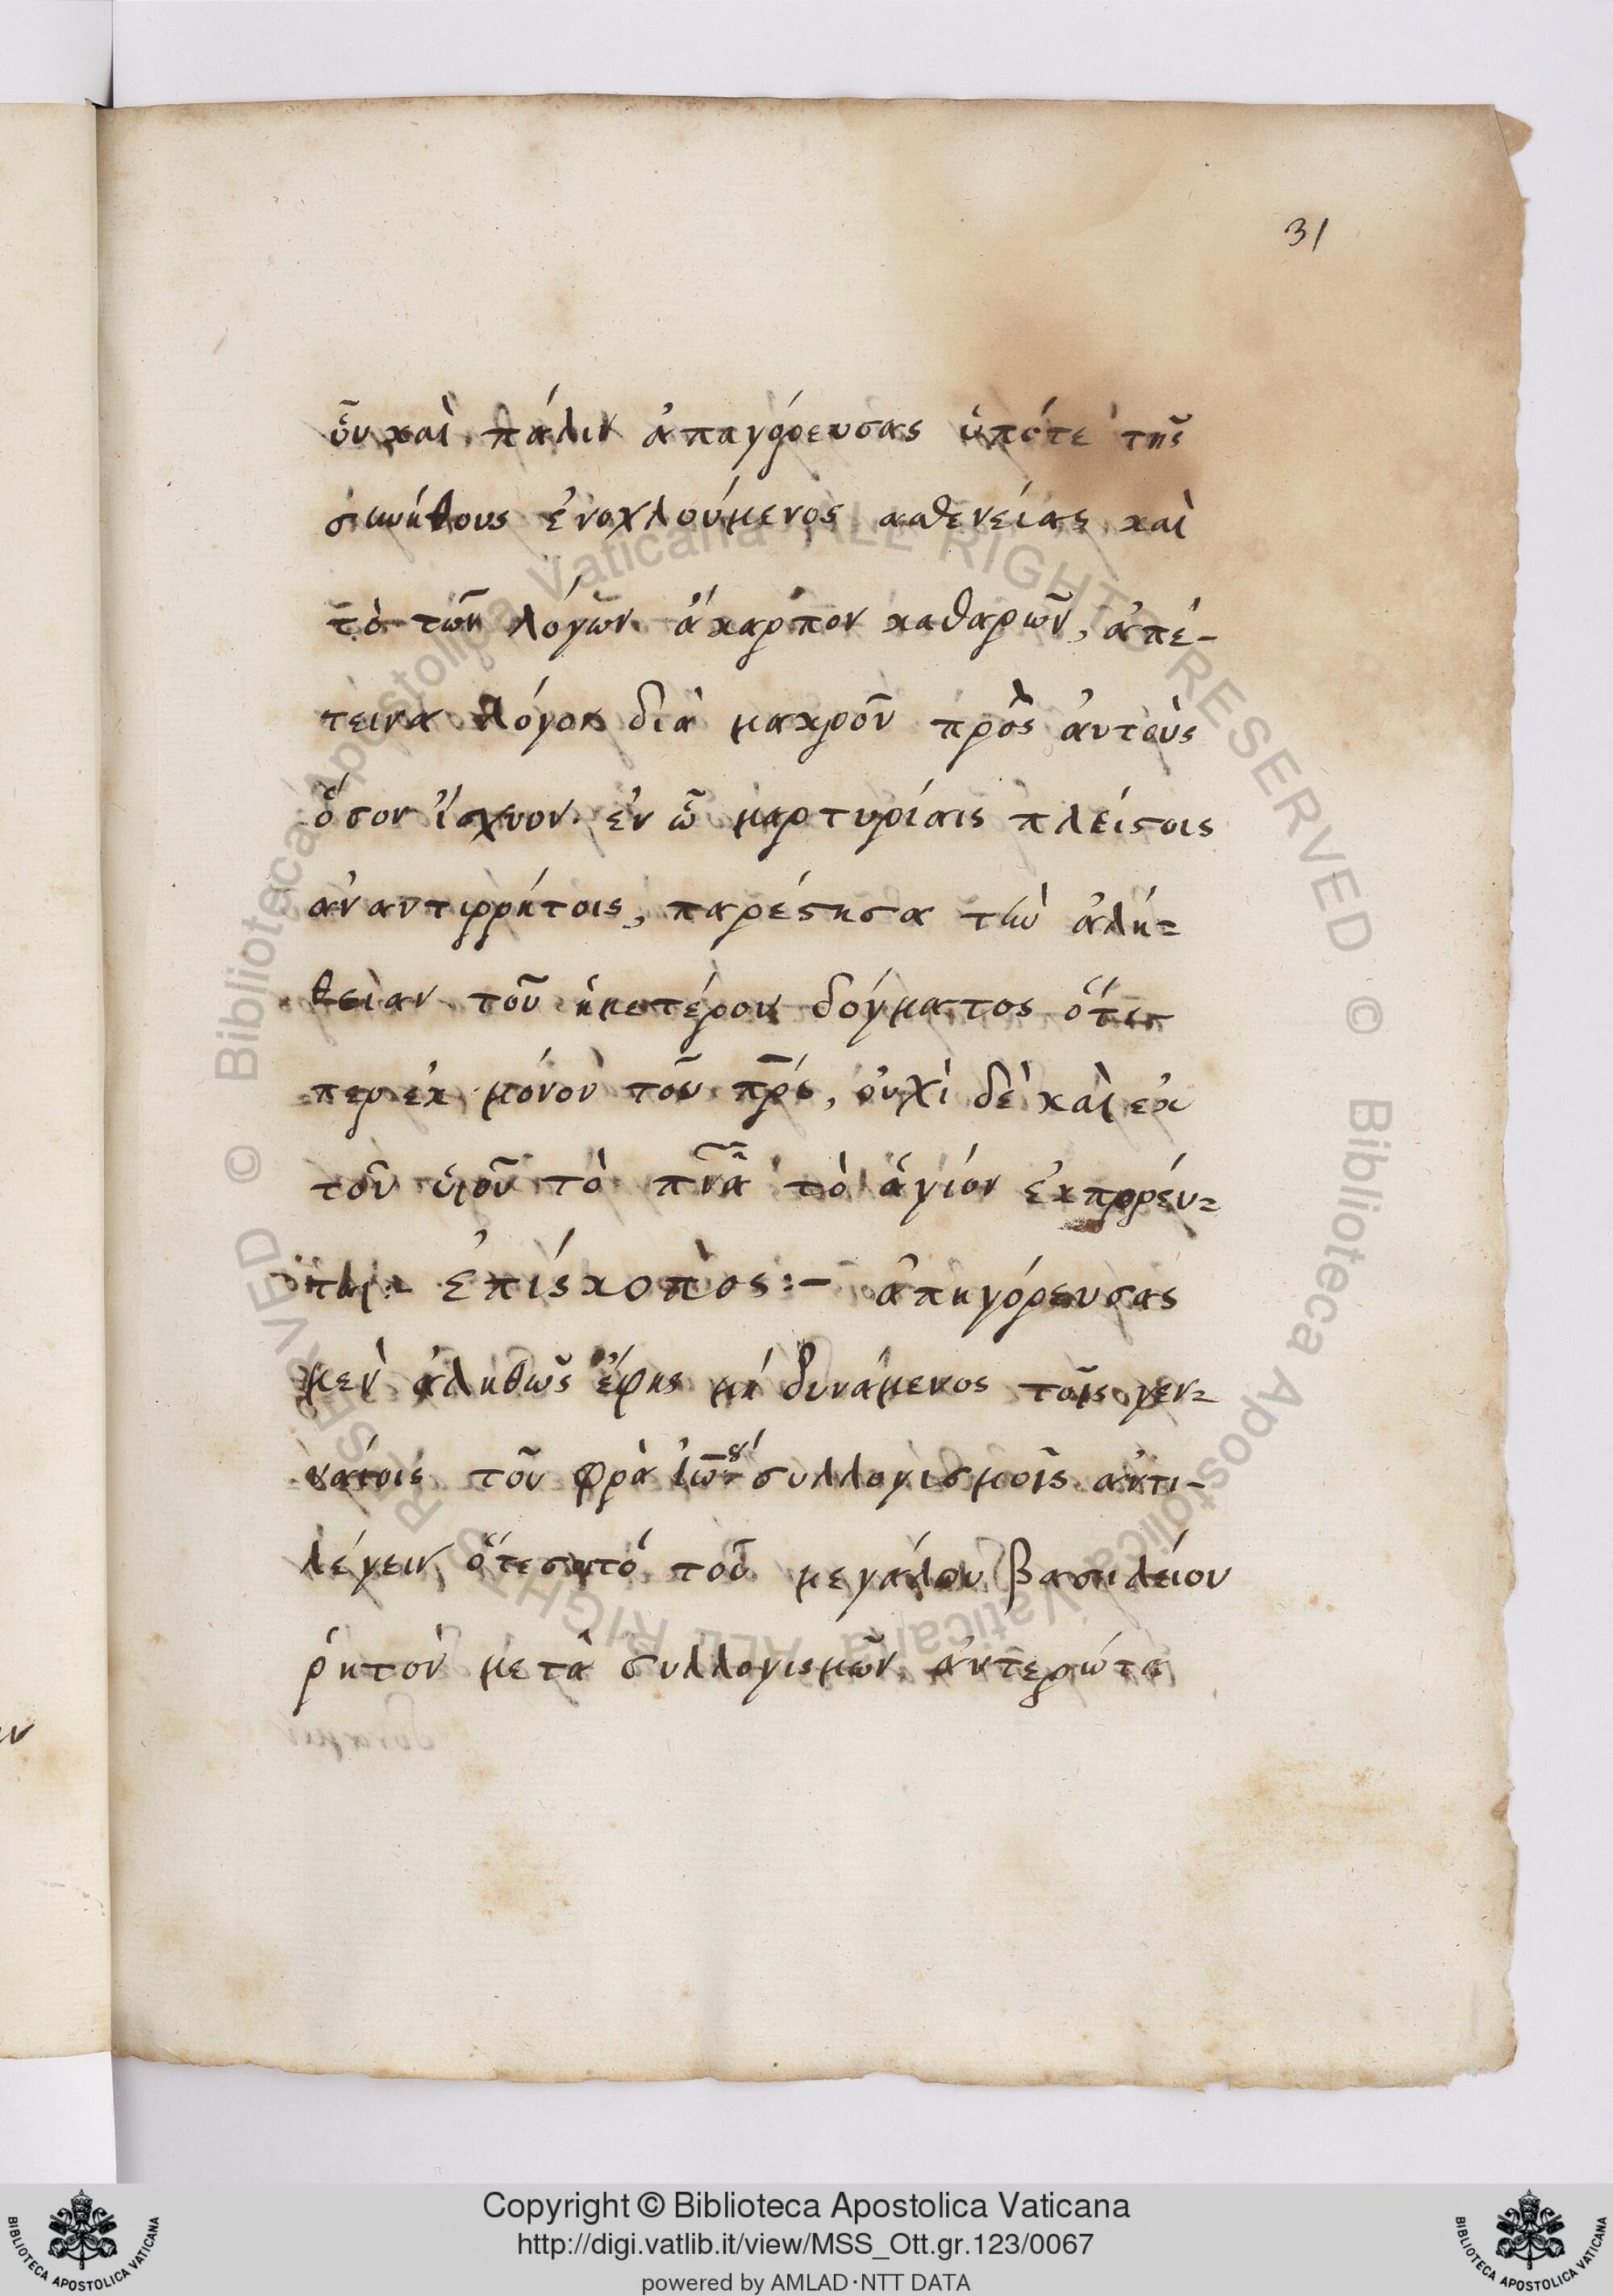 31
οὖν καὶ πάλιν ἀπαγόρευσας ὑπότε τῆς
συνήθους ἐνοχλούμενος ασθενείας καὶ
τὸ τῶν λόγων ἄκαρπον καθαρῶν, ἀπέ-
τεινα λόγον διὰ μακροῦ πρὸς ἀυτοὺς
ὅσον ἴσχυον ἐν ὧ μαρτυρίαις πλείστοις
ἀναντιρρήτοις, παρέστησα τὴν ἀλή=
θειαν τοῦ ἡμετέρου δόγματος ὅτι-
περ ἐκ μόνου τοῦ πρ̅ς, οὐχὶ δὲ καὶ ἐκ
τοῦ υἱοῦ τὸ πν̅α τὸ ἅγιον ἐκπορέυ=
ται: ἐπίσκοπος:- ἀπηγόρευσας
μὲν ἀληθῶς ἔφης μὴ δυνάμενος τοῖς γεν=
ναίοις τοῦ φρὰ ἰω̅ου συλλογισμοῖς ἀντι-
λέγειν, τοῦ μεγάλου βασιλείου
ῥητὸν μετὰ συλλογισμῶν ἀντερώτα
Copyright © Biblioteca Apostolica Vaticana
http://digi.vatlib.it/view/MSS_Ott.gr.123/0067
powered by AMLAD·NTT DATA
BIBLIOTECA APOSTOLICA VATICANA
BIBLIOTECA APOSTOLICA VATICANA
© Biblioteca Apostolica Vaticana ALL RIGHTS RESERVED © Biblioteca Apostolica Vaticana ALL RIGHTS RESERVED